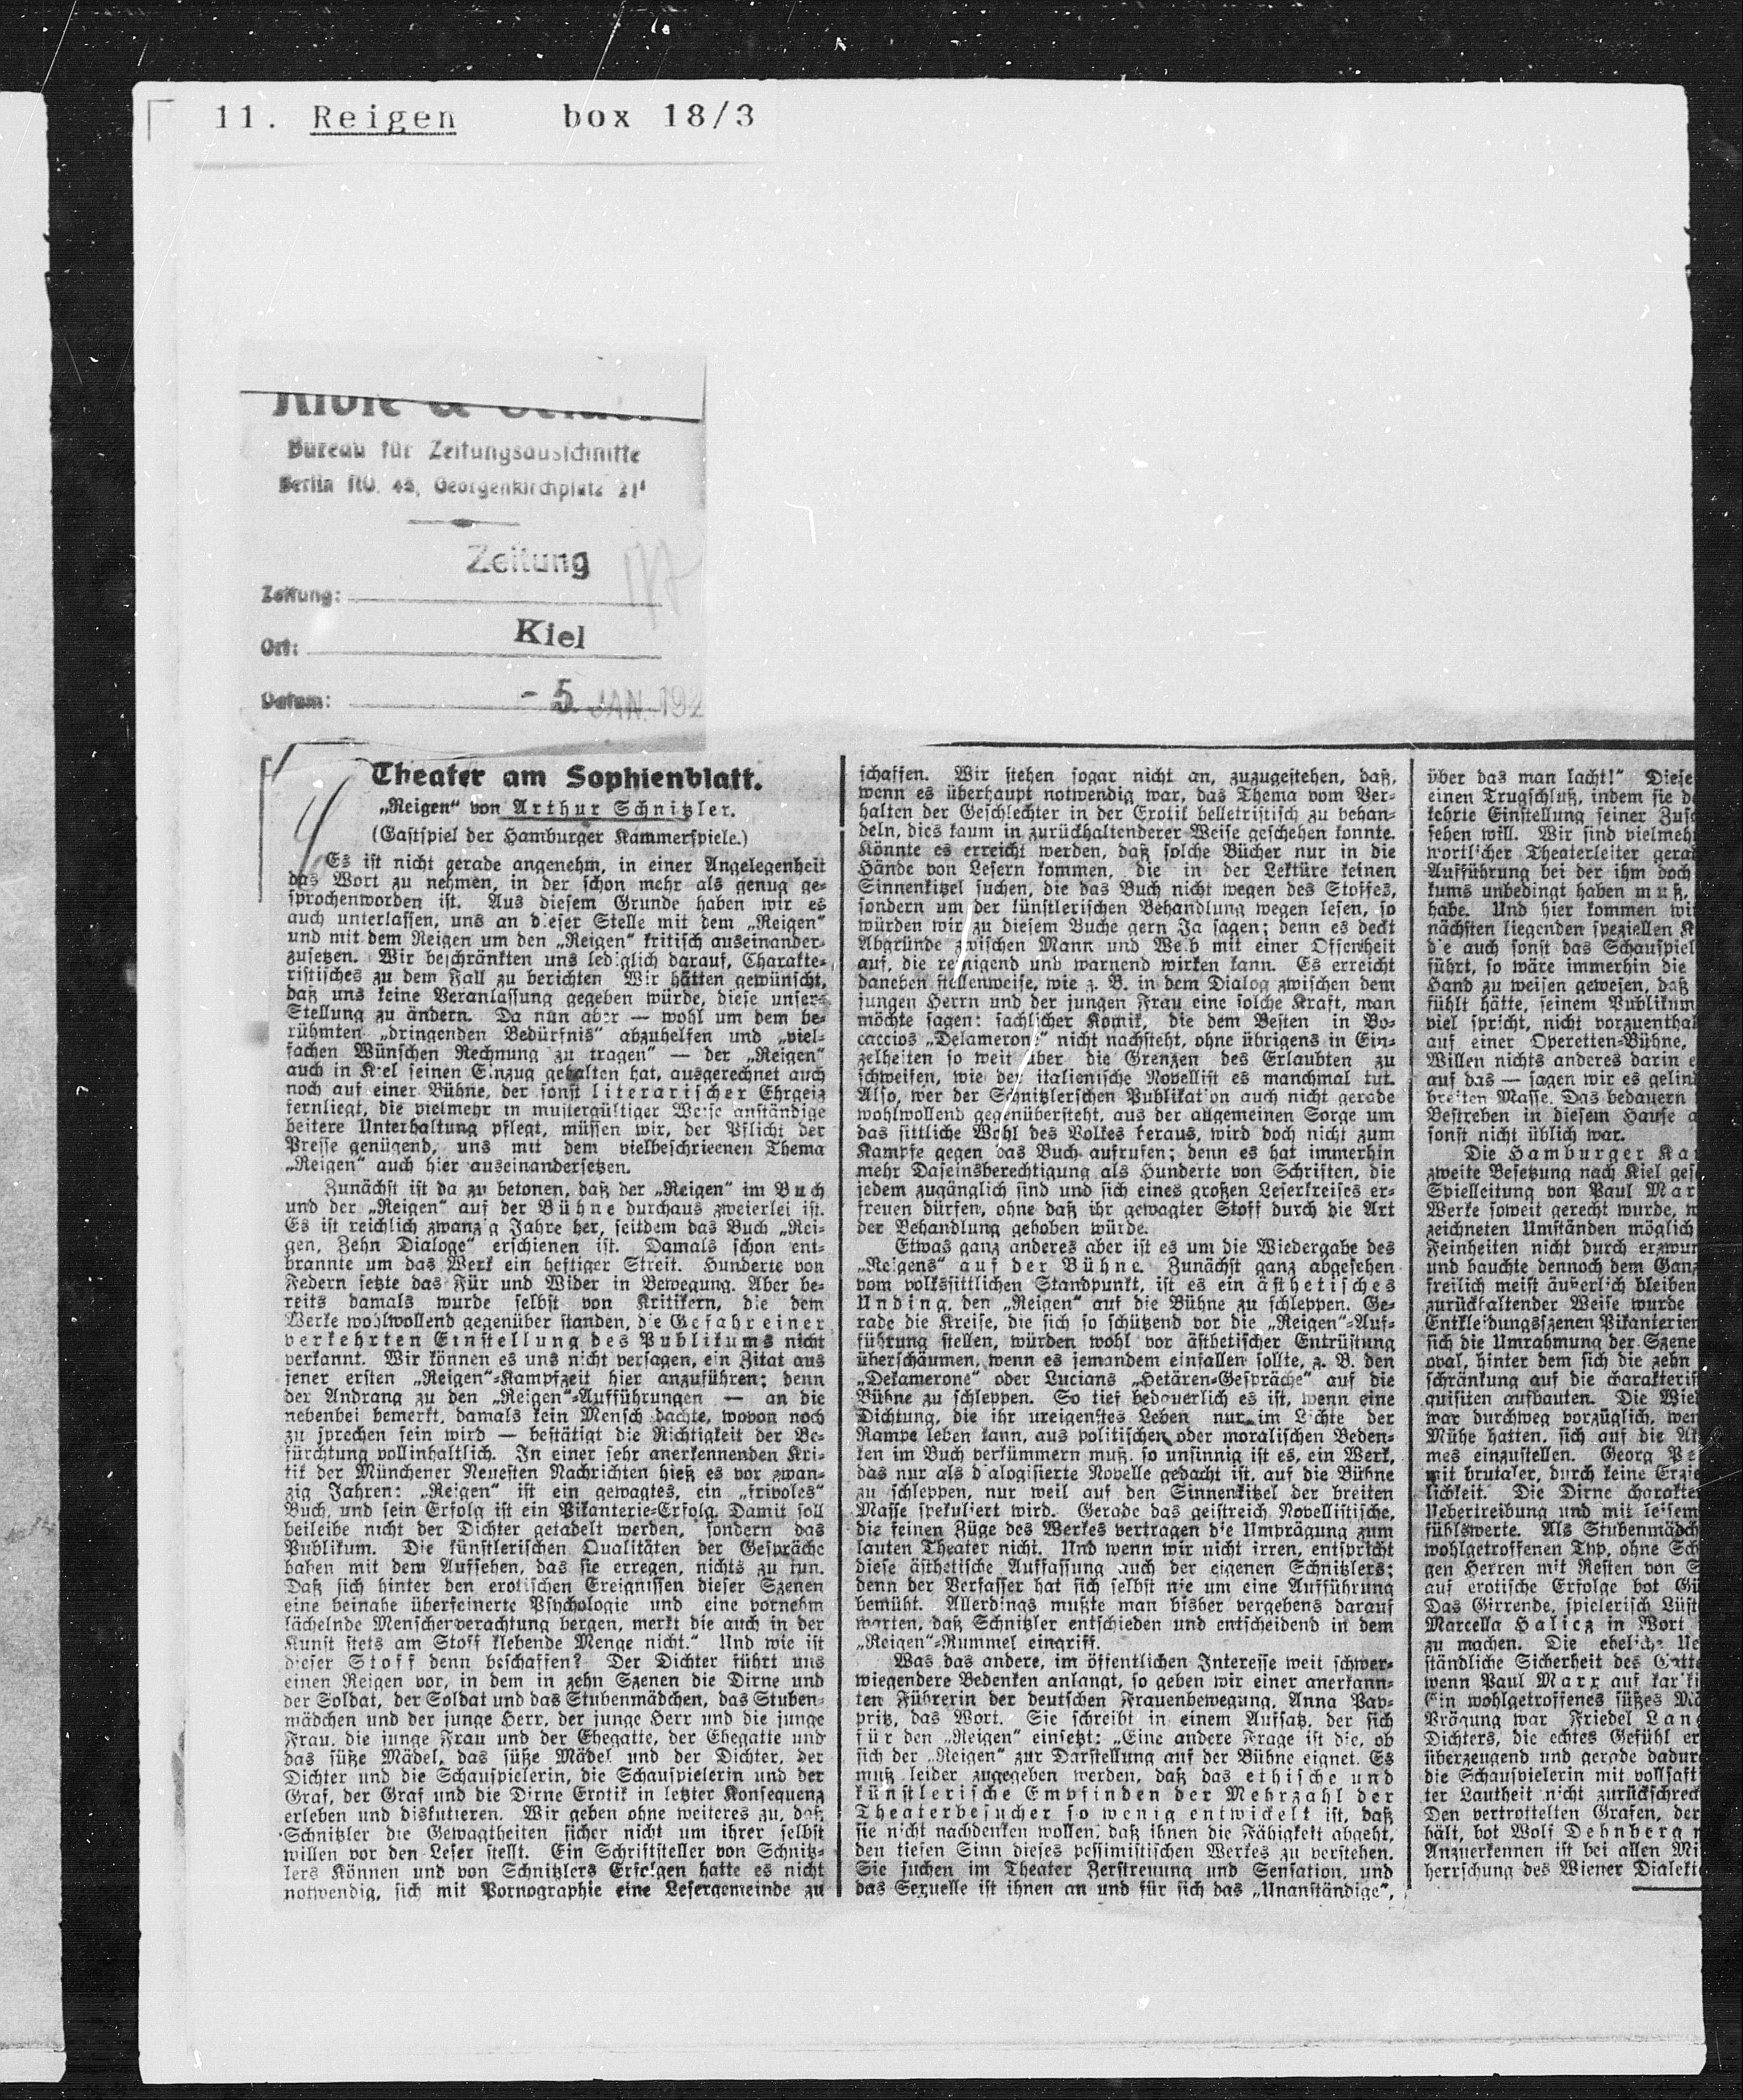 11. Reigen box 18/3
Bureau für Zeitungsausschnitte
Berlin NO. 43, Georgenkirchplatz 21
Zeitung
Zeitung:
Kiel
Ort:
Datum: - 5. JAN. 192
Theater am Sophienblatt.
„Reigen“ von Arthur Schnitzler.
(Gastspiel der Hamburger Kammerspiele.)
Es ist nicht gerade angenehm, in einer Angelegenheit
das Wort zu nehmen, in der schon mehr als genug ge-
sprochenworden ist. Aus diesem Grunde haben wir es
auch unterlassen, uns an dieser Stelle mit dem „Reigen“
und mit dem Reigen um den „Reigen“ kritisch auseinander-
zusetzen. Wir beschränkten uns lediglich darauf, Charakte-
ristisches zu dem Fall zu berichten Wir hätten gewünscht,
daß uns keine Veranlassung gegeben würde, diese unsere
Stellung zu ändern. Da nun aber — wohl um dem be-
rühmten „dringenden Bedürfnis“ abzuhelfen und „viel-
fachen Wünschen Rechnung zu tragen“ — der „Reigen“
auch in Kiel seinen Einzug gehalten hat, ausgerechnet auch
noch auf einer Bühne, der sonst literarischer Ehrgeiz
fernliegt, die vielmehr in mustergültiger Weise anständige
heitere Unterhaltung pflegt, müssen wir, der Pflicht der
Presse genügend, uns mit dem vielbeschrieenen Thema
„Reigen“ auch hier auseinandersetzen.
Zunächst ist da zu betonen, daß der „Reigen“ im Buch
und der „Reigen“ auf der Bühne durchaus zweierlei ist.
Es ist reichlich zwanzig Jahre her, seitdem das Buch „Rei-
gen, Zehn Dialoge“ erschienen ist. Damals schon ent-
brannte um das Werk ein heftiger Streit. Hunderte von
Federn setzte das Für und Wider in Bewegung. Aber be-
reits damals wurde selbst von Kritikern, die dem
Werke wohlwollend gegenüber standen, die Gefahr einer
verkehrten Einstellung des Publikums nicht
verkannt. Wir können es uns nicht versagen, ein Zitat aus
jener ersten „Reigen“-Kampfzeit hier anzuführen; denn
der Andrang zu den „Reigen“-Aufführungen — an die
nebenbei bemerkt, damals kein Mensch dachte, wovon noch
zu sprechen sein wird — bestätigt die Richtigkeit der Be-
fürchtung vollinhaltlich. In einer sehr anerkennenden Kri-
tik der Münchener Neuesten Nachrichten hieß es vor zwan-
zig Jahren: „Reigen“ ist ein gewagtes, ein „frivoles“
Buch, und sein Erfolg ist ein Pikanterie-Erfolg. Damit soll
beileibe nicht der Dichter getadelt werden, sondern das
Publikum. Die künstlerischen Qualitäten der Gespräche
haben mit dem Aufsehen, das sie erregen, nichts zu tun.
Daß sich hinter den erotischen Ereignissen dieser Szenen
eine beinahe überfeinerte Psychologie und eine vornehm
lächelnde Menschenverachtung bergen, merkt die auch in der
Kunst stets am Stoff klebende Menge nicht.“ Und wie ist
dieser Stoff denn beschaffen? Der Dichter führt uns
einen Reigen vor, in dem in zehn Szenen die Dirne und
der Soldat, der Soldat und das Stubenmädchen, das Stuben-
mädchen und der junge Herr, der junge Herr und die junge
Frau, die junge Frau und der Ehegatte, der Ehegatte und
das süße Mädel, das süße Mädel und der Dichter, der
Dichter und die Schauspielerin, die Schauspielerin und der
Graf, der Graf und die Dirne Erotik in letzter Konsequenz
erleben und diskutieren. Wir geben ohne weiteres zu, daß
Schnitzler die Gewagtheiten sicher nicht um ihrer selbst
willen vor den Leser stellt. Ein Schriftsteller von Schnitz-
lers Können und von Schnitzlers Erfolgen hatte es nicht
notwendig, sich mit Pornographie eine Lesergemeinde zu
schaffen. Wir stehen sogar nicht an, zuzugestehen, daß,
wenn es überhaupt notwendig war, das Thema vom Ver-
halten der Geschlechter in der Erotik belletristisch zu behan-
deln, dies kaum in zurückhaltenderer Weise geschehen konnte.
Könnte es erreicht werden, daß solche Bücher nur in die
Hände von Lesern kommen, die in der Lektüre keinen
Sinnenkitzel suchen, die das Buch nicht wegen des Stoffes,
sondern um der künstlerischen Behandlung wegen lesen, so
würden wir zu diesem Buche gern Ja sagen; denn es deckt
Abgründe zwischen Mann und Weib mit einer Offenheit
auf, die reinigend und warnend wirken kann. Es erreicht
daneben stellenweise, wie z. B. in dem Dialog zwischen dem
jungen Herrn und der jungen Frau eine solche Kraft, man
möchte sagen: sachlicher Komik, die dem Besten in Bo-
caccios „Dekamerone“ nicht nachsteht, ohne übrigens in Ein-
zelheiten so weit über die Grenzen des Erlaubten zu
schweifen, wie der italienische Novellist es manchmal tut.
Also, wer der Schnitzlerschen Publikation auch nicht gerade
wohlwollend gegenübersteht, aus der allgemeinen Sorge um
das sittliche Wohl des Volkes heraus, wird doch nicht zum
Kampfe gegen das Buch aufrufen; denn es hat immerhin
mehr Daseinsberechtigung als Hunderte von Schriften, die
jedem zugänglich sind und sich eines großen Leserkreises er-
freuen dürfen, ohne daß ihr gewagter Stoff durch die Art
der Behandlung gehoben würde.
Etwas ganz anderes aber ist es um die Wiedergabe des
„Reigens“ auf der Bühne. Zunächst ganz abgesehen
vom volkssittlichen Standpunkt, ist es ein ästhetisches
Unding, den „Reigen“ auf die Bühne zu schleppen. Ge-
rade die Kreise, die sich so schützend vor die „Reigen“-Auf-
führung stellen, würden wohl vor ästhetischer Entrüstung
überschäumen, wenn es jemandem einfallen sollte, z. B. den
„Dekamerone“ oder Lucians „Hetären-Gespräche“ auf die
Bühne zu schleppen. So tief bedauerlich es ist, wenn eine
Dichtung, die ihr ureigenstes Leben nur im Lichte der
Rampe leben kann, aus politischen oder moralischen Beden-
ken im Buch verkümmern muß, so unsinnig ist es, ein Werk,
das nur als dialogisierte Novelle gedacht ist, auf die Bühne
zu schleppen, nur weil auf den Sinnenkitzel der breiten
Masse spekuliert wird. Gerade das geistreich Novellistische,
die feinen Züge des Werkes vertragen die Umprägung zum
lauten Theater nicht. Und wenn wir nicht irren, entspricht
diese ästhetische Auffassung auch der eigenen Schnitzlers;
denn der Verfasser hat sich selbst nie um eine Aufführung
bemüht. Allerdings mußte man bisher vergebens darauf
warten, daß Schnitzler entschieden und entscheidend in dem
„Reigen“-Rummel eingriff.
Was das andere, im öffentlichen Interesse weit schwer-
wiegendere Bedenken anlangt, so geben wir einer anerkann-
ten Führerin der deutschen Frauenbewegung, Anna Pap-
pritz, das Wort. Sie schreibt in einem Aufsatz, der sich
für den „Reigen“ einsetzt: „Eine andere Frage ist die, ob
sich der „Reigen“ zur Darstellung auf der Bühne eignet. Es
muß leider zugegeben werden, daß das ethische und
künstlerische Empfinden der Mehrzahl der
Theaterbesucher so wenig entwickelt ist, daß
sie nicht nachdenken wollen, daß ihnen die Fähigkeit abgeht,
den tiefen Sinn dieses pessimistischen Werkes zu verstehen.
Sie suchen im Theater Zerstreuung und Sensation, und
das Sexuelle ist ihnen an und für sich das „Unanständige“,
über das man lacht!“ Diese
einen Trugschluß, indem sie d
kehrte Einstellung seiner Zus
sehen will. Wir sind vielmeh
wortlicher Theaterleiter gera
Aufführung bei der ihm doch
kums unbedingt haben muß,
habe. Und hier kommen wir
nächsten liegenden speziellen K
die auch sonst das Schauspiel
führt, so wäre immerhin die
Hand zu weisen gewesen, daß
fühlt hätte, seinem Publikum
viel spricht, nicht vorzuenthal
auf einer Operetten-Bühne,
Willen nichts anderes darin e
auf das — sagen wir es gelin
breiten Masse. Das bedauern
Bestreben in diesem Hause a
sonst nicht üblich war.
Die Hamburger Ka
zweite Besetzung nach Kiel ges
Spielleitung von Paul Mar
Werke soweit gerecht wurde, w
zeichneten Umständen möglich
Feinheiten nicht durch erzwun
und hauchte dennoch dem Ganz
freilich meist äußerlich bleiben
zurückhaltender Weise wurde
Entkleidungsszenen Pikanterien
sich die Umrahmung der Szene
oval, hinter dem sich die zehn
schränkung auf die charakteris
quisiten aufbauten. Die Wie
war durchweg vorzüglich, wen
Mühe hatten, sich auf die A
mes einzustellen. Georg Pe
mit brutaler, durch keine Erzie
lichkeit. Die Dirne charakte
Uebertreibung und mit leisem
fühlswerte. Als Stubenmädch
wohlgetroffenen Typ, ohne Sch
gen Herren mit Resten von S
auf erotische Erfolge bot Gü
Das Girrende, spielerisch Lüst
Marcella Halicz in Wort
zu machen. Die eheliche Ue
ständliche Sicherheit des Gatte
wenn Paul Marx auf kariki
Ein wohlgetroffenes süßes Mä
Prägung war Friedel Lan
Dichters, die echtes Gefühl er
überzeugend und gerade dadur
die Schauspielerin mit vollsaft
ter Lautheit nicht zurückschreck
Den vertrottelten Grafen, der
hält, bot Wolf Dehnberg
Anzuerkennen ist bei allen Mi
herrschung des Wiener Dialekt